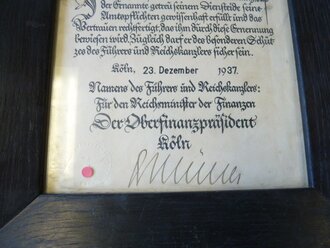 der Ernannte getreu seinem Diensteide seine
Amtspflichten gewissenhaft erfüllt und das
Vertrauen rechtfertigt, das ihm durch diese Ernennung
bewiesen wird. Zugleich darf er des besonderen Schut-
zes des Führers und Reichskanzlers sicher sein.
Köln, 23. Dezember 1937.
Namens des Führers und Reichskanzlers:
Für den Reichsminister der Finanzen
Der Oberfinanzpräsident
Köln